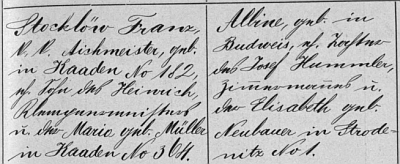 Stocklöw Franz,
k. k. Aichmeister, geb.
in Kaaden No 182,
ehl. Sohn des Heinrich,
Klempnermeisters
u. der Maria geb. Müller
in Kaaden No 364.
Albine, geb. in
Budweis, ehl. Tochter
des Josef Hummler,
Zimmermannes u.
der Elisabeth geb.
Neubauer in Strode-
nitz No 1.